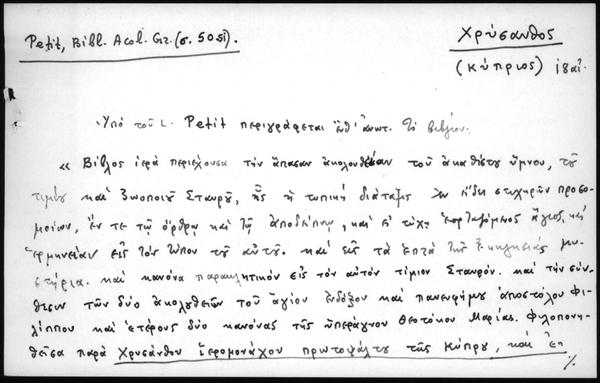 Petit, Bibl. Acol. Gr. (σ. 50 si).
Χρύσανθος
(κύπριος) ι8αι.
Ὑπό τοῦ L. Petit περιγράφεται ἔνθ' ἀνωτ. τό βιβλίον:
« Βίβλος ἱερά περιέχουσα τήν ἅπασαν ἀκολουθίαν τοῦ ἀκαθίστου ὕμνου, τοῦ
τιμίου καί ζωοποιοῦ Σταυροῦ, ἧς ἡ τυπική διάταξις ἐν εἴδει στιχηρῶν προσο-
μοίων, ἔν τε τῷ ὄρθρῳ καί τῷ ἀποδείπνῳ, καί εἰ τύχῃ ἑορταζόμενος ἅγιος, καί
ἑρμηνείαν εἰς τόν τύπον τοῦ αὐτοῦ. καί εἰς τά ἑπτά τῆς Ἐκκλησίας μυ-
στήρια. καί κανόνα παρακλητικόν εἰς τόν αὐτόν τίμιον Σταυρόν. καί τήν σύν-
θεσιν τῶν δύο ἀκολουθιῶν τοῦ ἁγίου ἐνδόξου καί πανευφήμου ἀποστόλου Φι-
λίππου καί ἑτέρους δύο κανόνας τῆς ὑπεράγνου Θεοτόκου Μαρίας. Φιλοπονη-
θεῖσα παρά Χρυσάνθου ἱερομονάχου πρωτοψάλτου τῆς Κύπρου, καί ἐκ
./.